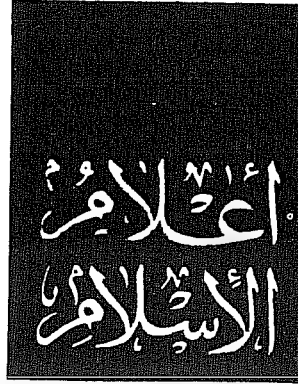 أعلام
الإسلام